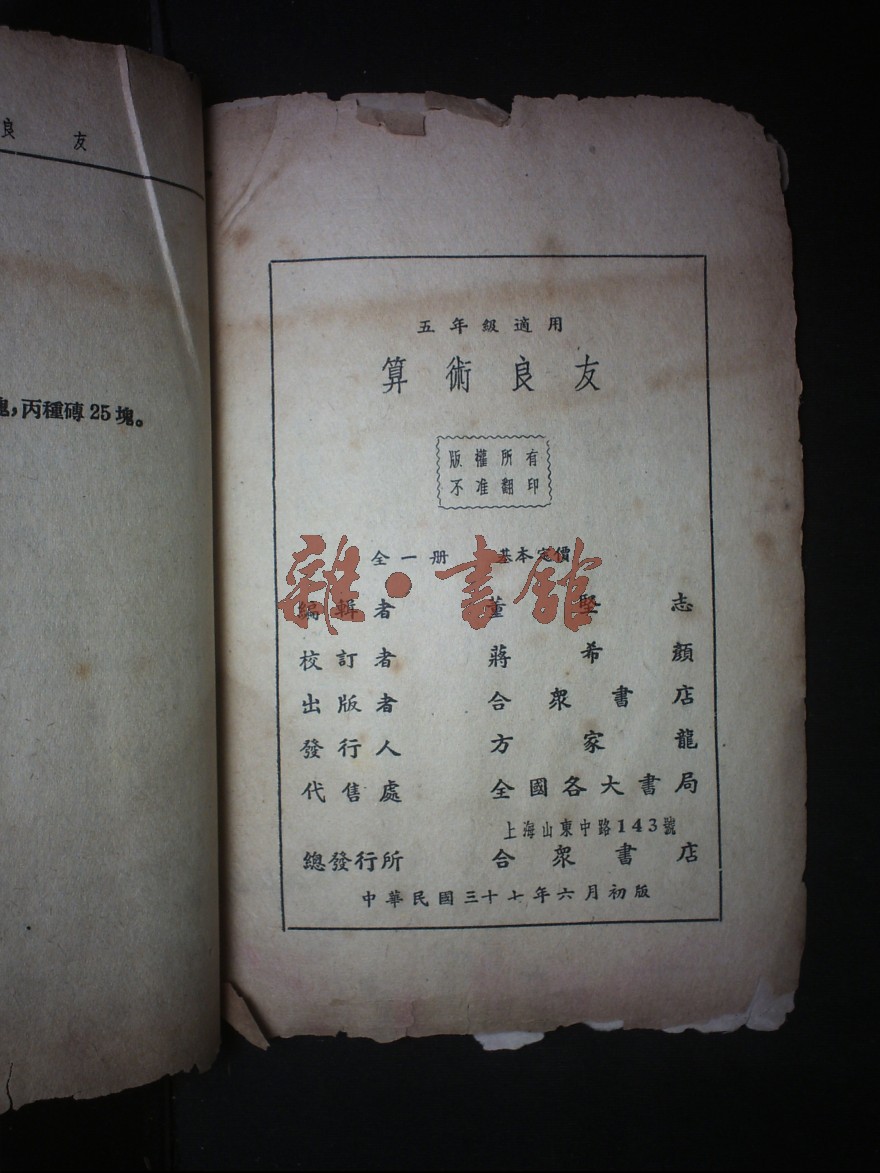 良 友
塊,丙種磚25塊。
五年級適用
算術良友
版權所有
不准翻印
全一册 基本定價
雜·書館
編輯者 董堅志
校訂者 蔣希顏
出版者 合衆書店
發行人 方家龍
代售處 全國各大書局
上海山東中路143號
總發行所 合衆書店
中華民國三十七年六月初版